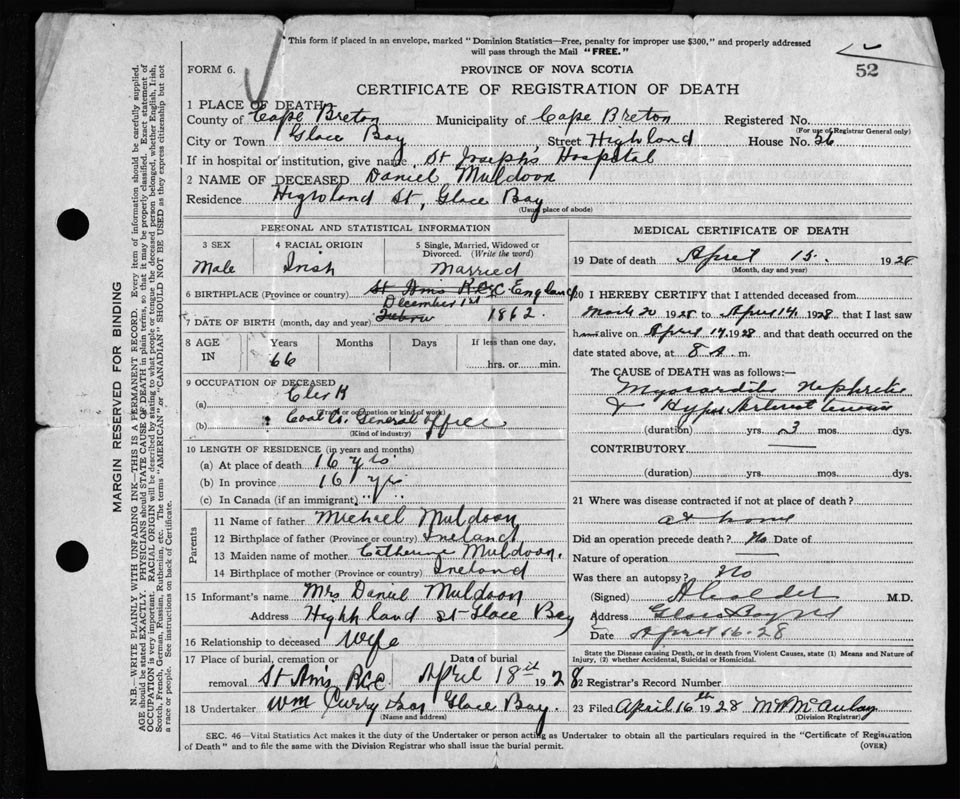 This form if placed in an envelope, marked "Dominion Statistics—Free, penalty for improper use $300," and properly addressed
will pass through the Mail "FREE."
52
FORM 6.
PROVINCE OF NOVA SCOTIA
CERTIFICATE OF REGISTRATION OF DEATH
MARGIN RESERVED FOR BINDING
N.B.—WRITE PLAINLY WITH UNFADING INK—THIS IS A PERMANENT RECORD. Every item of information should be carefully supplied.
AGE should be stated EXACTLY. PHYSICIANS should STATE CAUSE OF DEATH in plain terms, so that it may be properly classified. Exact statement of
OCCUPATION is very important. RACIAL ORIGIN will be described by stating to what people or tongue the deceased person belonged, whether English, Irish,
Scotch, French, German, Russian, Ruthenian, etc. The terms "AMERICAN" or "CANADIAN" SHOULD NOT BE USED as they express citizenship but not
a race or people. See instructions on back of Certificate.
1 PLACE OF DEATH
County of Cape Breton Municipality of Cape Breton Registered No.
(For use of Registrar General only)
City or Town Glace Bay Street Highland House No. 56
If in hospital or institution, give name St Joseph's Hospital
2 NAME OF DECEASED Daniel Muldoon
Residence Highland St, Glace Bay
(Usual place of abode)
PERSONAL AND STATISTICAL INFORMATION
3 SEX 4 RACIAL ORIGIN 5 Single, Married, Widowed or Divorced. (Write the word)
Male Irish Married
6 BIRTHPLACE (Province or country) St Ams R.C.C England
December 1st
7 DATE OF BIRTH (month, day and year) 1862.
8 AGE IN Years Months Days If less than one day,
66 hrs. or min.
9 OCCUPATION OF DECEASED
(a) Clerk
(Trade or occupation or kind of work)
(b) Coal Co. General office
(Kind of industry)
10 LENGTH OF RESIDENCE (in years and months)
(a) At place of death 16 yrs.
(b) In province 16 yrs
(c) In Canada (if an immigrant) " "
Parents
11 Name of father Michael Muldoon
12 Birthplace of father (Province or country) Ireland
13 Maiden name of mother Catherine Muldoon.
14 Birthplace of mother (Province or country) Ireland
15 Informant's name Mrs Daniel Muldoon
Address Highland St Glace Bay
16 Relationship to deceased Wife
17 Place of burial, cremation or removal St Ams R.C.C. Date of burial April 18th 1928
18 Undertaker Wm Curry Glace Bay.
(Name and address)
MEDICAL CERTIFICATE OF DEATH
19 Date of death April 15. 1928
(Month, day and year)
20 I HEREBY CERTIFY that I attended deceased from
March 20 1928 to April 14, 1928, that I last saw
h alive on April 14, 1928 and that death occurred on the
date stated above, at 8 A m.
The CAUSE of DEATH was as follows:—
Myocarditis Nephritis
&
(duration) yrs. 3 mos. dys.
CONTRIBUTORY
(duration) yrs. mos. dys.
21 Where was disease contracted if not at place of death?
at home
Did an operation precede death? No Date of
Nature of operation
Was there an autopsy? No
(Signed) M.D.
Address Glace Bay NS
Date April 16-28
State the Disease causing Death, or in death from Violent Causes, state (1) Means and Nature of
Injury, (2) whether Accidental, Suicidal or Homicidal.
22 Registrar's Record Number
23 Filed April 16th 1928 McAulay
(Division Registrar)
SEC. 46—Vital Statistics Act makes it the duty of the Undertaker or person acting as Undertaker to obtain all the particulars required in the "Certificate of Registration
of Death" and to file the same with the Division Registrar who shall issue the burial permit.
(OVER)